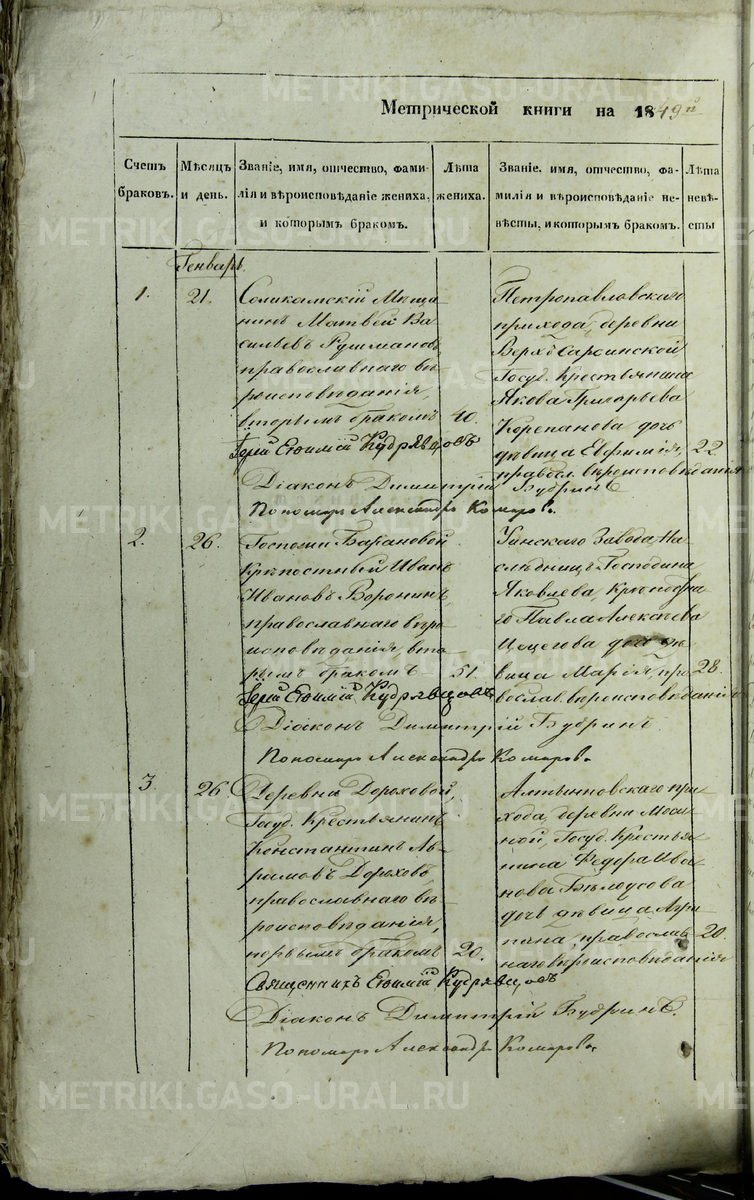 Метрической книги на 1849й
Счетъ браковъ.
Мѣсяцъ и день.
Званіе, имя, отчество, фами-
лія и вѣроисповѣданіе жениха,
и которымъ бракомъ.
Лѣта жениха.
Званіе, имя, отчество, фа-
милія и вѣроисповѣданіе не-
вѣсты, и которымъ бракомъ.
Лѣта невѣ-
сты
Генварь.
1.
21.
Соликамскій Мѣща-
нинъ Матвей Ва-
сильевъ Гушмановъ
православнаго вѣ-
роисповѣданія,
вторымъ бракомъ
40.
Петропавловскаго
прихода, деревни
Верхъ Сарсинской
Госуд. Крестьянина
Якова Григорьева
Корепанова дочь
дѣвица Евфимія,
22
правосл. вѣроисповѣданія
Іерей Евѳимій Кудрявцовъ
Діаконъ Димитрій Бубринъ
Пономарь Александръ Комаровъ.
2.
26.
Госпожи Барановой
Крѣпостный Иванъ
Ивановъ Воронинъ,
православнаго вѣро
исповѣданія, вто-
рымъ бракомъ
51.
Уинскаго Завода На
слѣдницъ Господина
Яковлева, Крѣпостна
го Павла Алексѣева
дочь дѣ-
вица Марія, пра-
28.
вослав. вѣроисповѣданія
Іерей Евѳимій Кудрявцовъ
Діаконъ Димитрій Бубринъ.
Пономарь Александръ Комаровъ.
3.
26
Деревни Дороховой,
Госуд. Крестьянинъ
Константинъ Аб-
рамовъ Дороховъ
православнаго вѣ-
роисповѣданія,
первымъ бракомъ
20.
Алтынновскаго при-
хода, деревни Моси-
ной, Госуд. Крестья-
нина Федора Ива-
нова Бѣлоусова
дочь дѣвица Агри-
пина, православ-
20.
наго вѣроисповѣданія
Священникъ Евѳимій Кудрявцовъ
Діаконъ Димитрій Бубринъ.
Пономарь Александръ Комаровъ.
METRIKI.GASO-URAL.RU